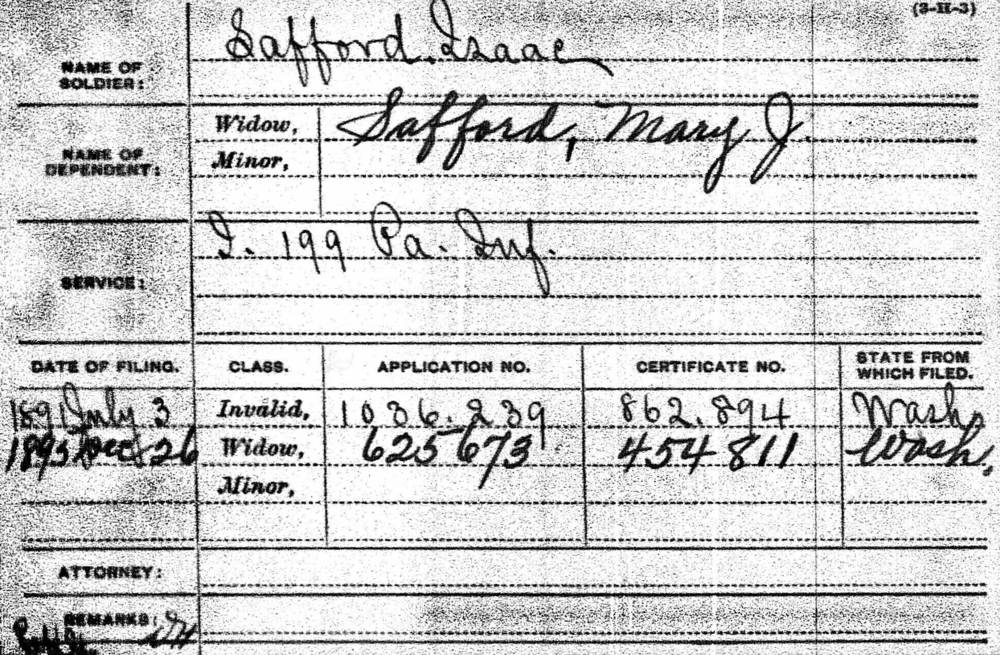 (3-H-3)
NAME OF SOLDIER: Safford. Isaac
NAME OF DEPENDENT: Widow, Safford, Mary J.
Minor,
SERVICE: I. 199 Pa. Inf.
DATE OF FILING. CLASS. APPLICATION NO. CERTIFICATE NO. STATE FROM WHICH FILED.
1891 July 3 Invalid, 1036.239 862.894 Wash.
1895 Dec 26 Widow, 625673 454811 Wash.
Minor,
ATTORNEY:
REMARKS: